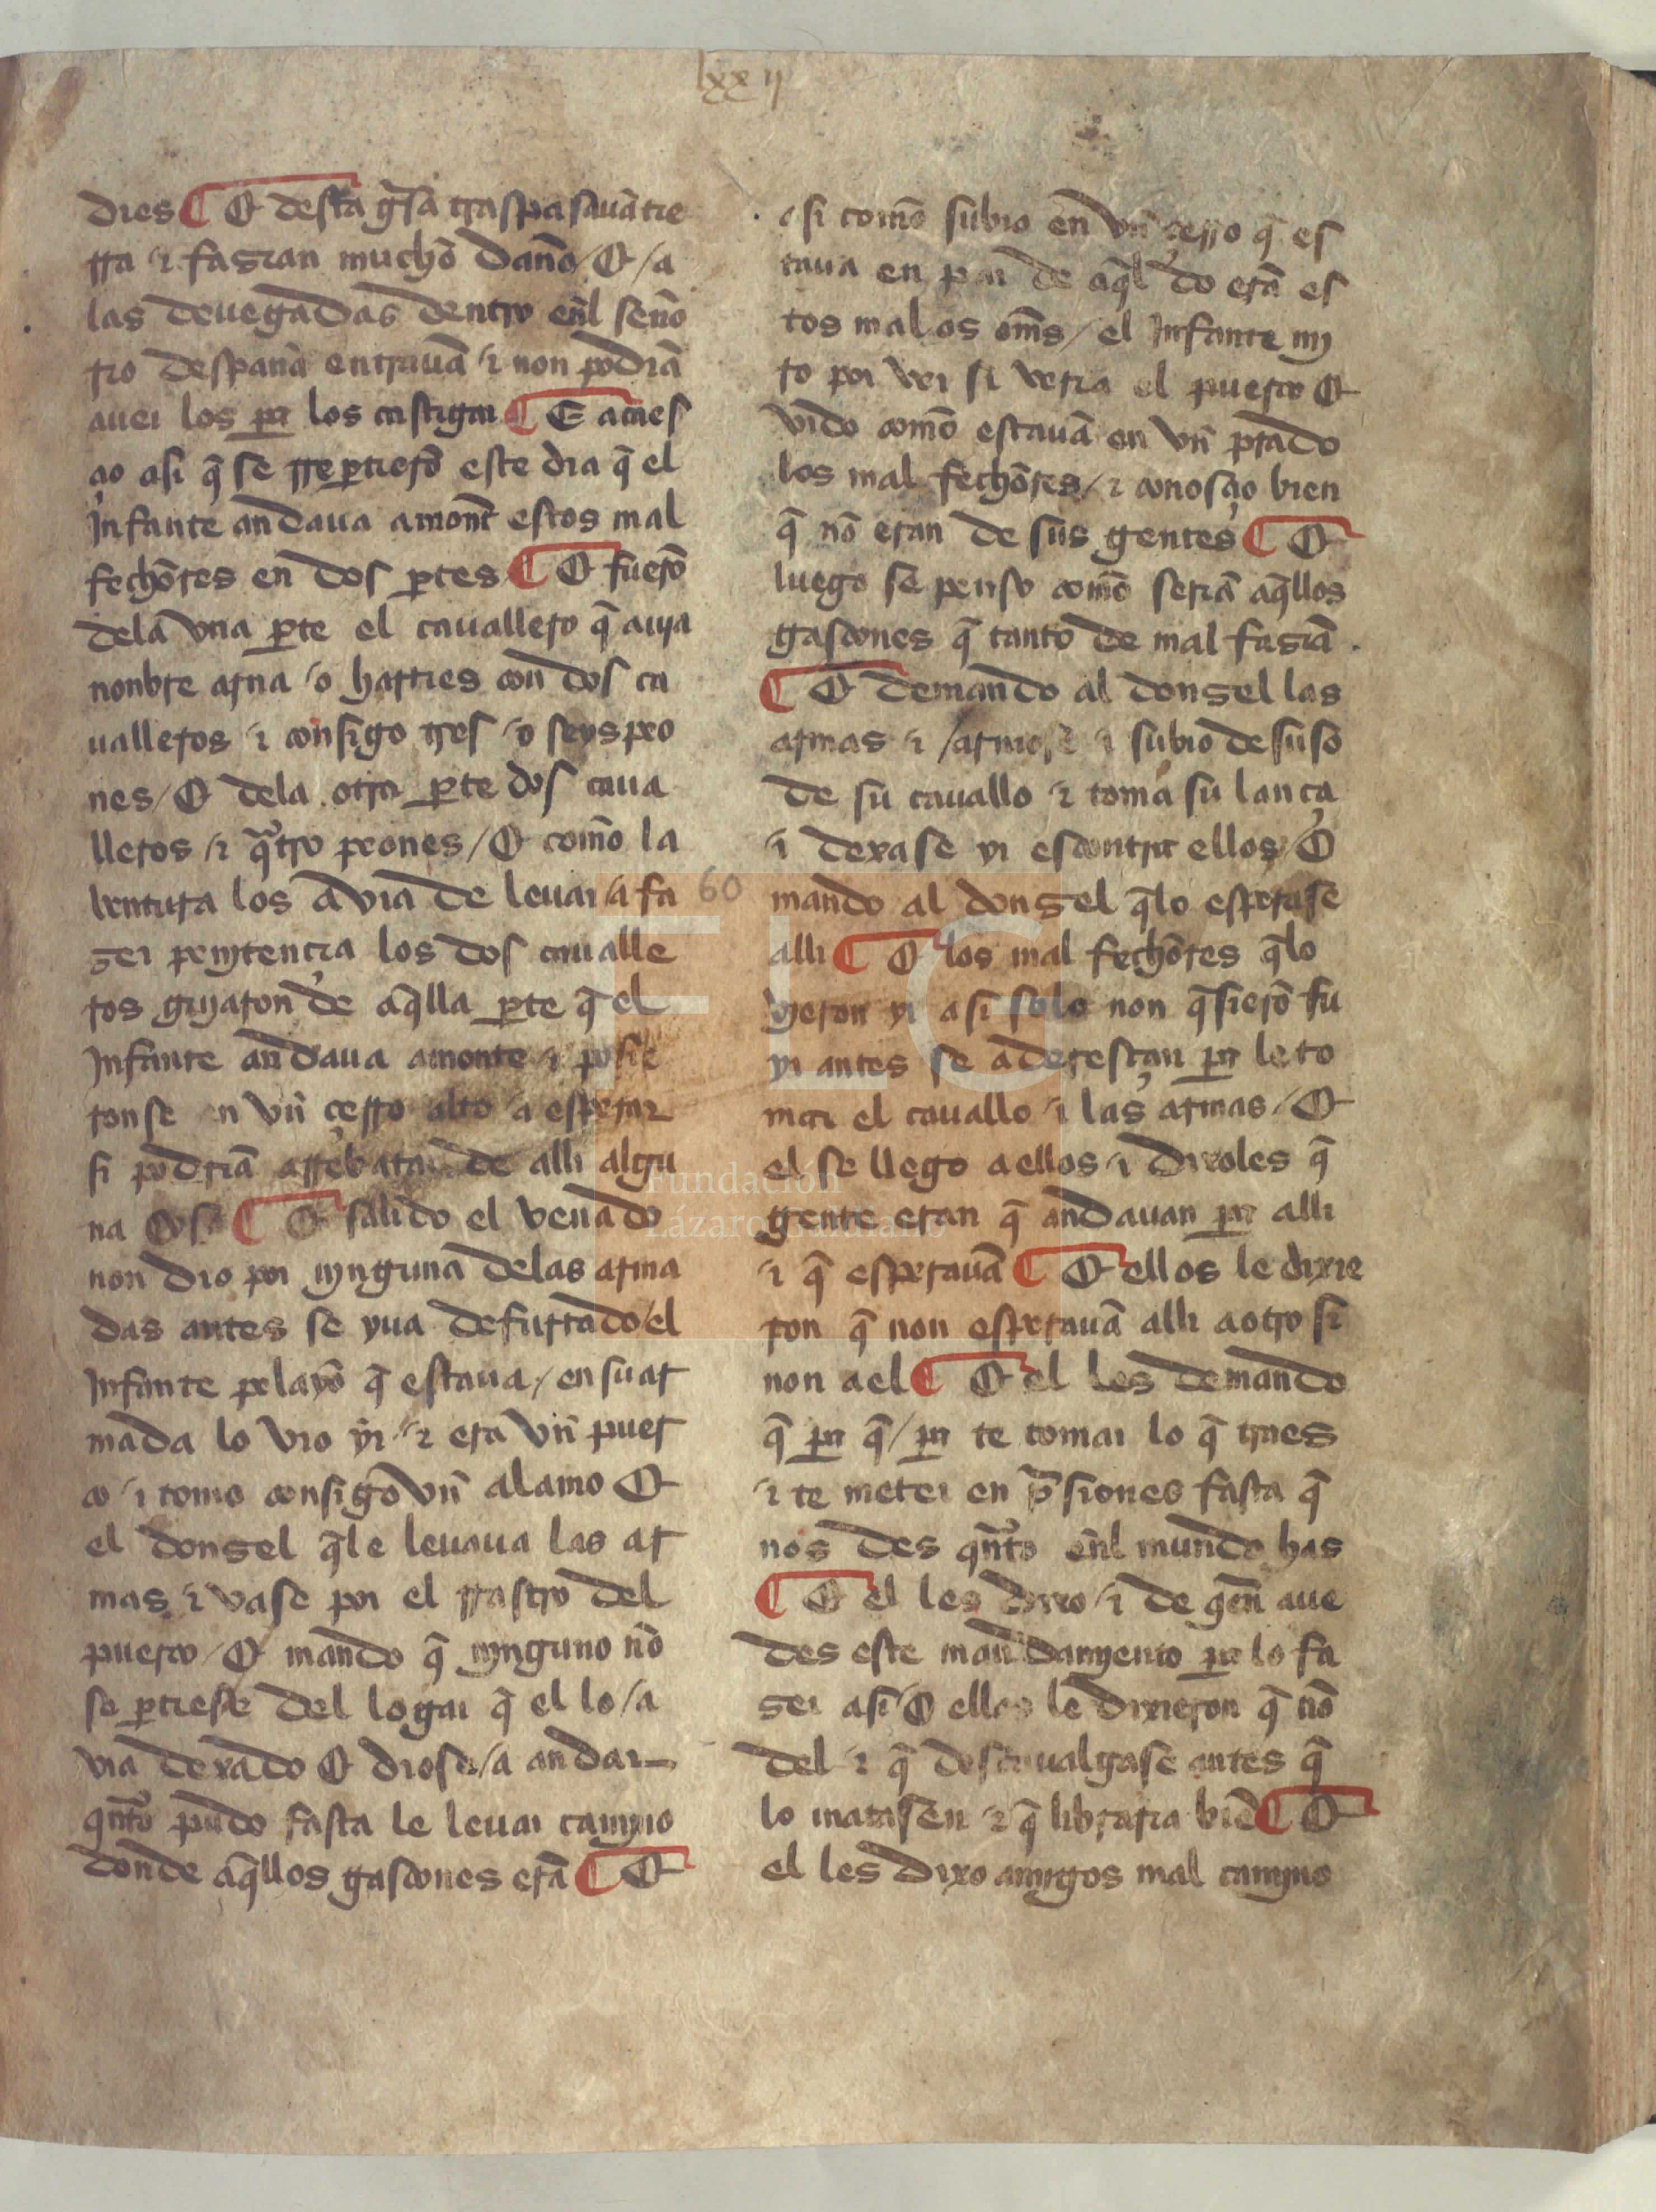 lxxij
dies ¶ E desta gͥsa traspasauā tie
rra ⁊ fazian mucho daño / E / a
las deuegadas dentro enl seño
rio despaña entrauā ⁊ non podiā
auer los pa los castigar ¶ E acaes
çio asi q̄ se rrepartierō este dia q̄ el
Infante andaua a mont estos mal
fechores en dos partes ¶ E fuerō
dela vna parte el cauallero q̄ auja
nonbre arna / o harries con dos ca
ualleros ⁊ consigo tres / o seys peo
nes / E dela otra parte dos caua
lleros / ⁊ qͣtro peones / E como la
ventura los avia de leuar / a fa
zer penjtençia los dos caualle
ros gujaron de aq̄lla parte q̄ el
Infante andaua a monte ⁊ posie
ronse en vn̄ çerro alto / a esperar
si podriā arrebatar de alli algu
na cosa ¶ E salido el venado
non dio por njnguna delas arma
das antes se yua defurtado / el
Infante pelayo q̄ estaua / en su ar
mada lo vio yr / ⁊ era vn̄ puer
co / ⁊ tomo consigo vn̄ alamo E
el donzel q̄le leuaua las ar
mas ⁊ vase por el rrastro del
puerco / E mando q̄ njnguno nō
se partiese del logar q̄ el lo / a
via dexado E diose / a andar
qn̄to pudo fasta le leuar camjno
donde aq̄llos gascones erā ¶ E
60
asi como subio en vn̄ çerro q̄ es
taua en par de aq̄l do erā es
tos malos om̄s / el Infante mj
ro por ver si veria el puerco E
vido como estauā en vn̄ prado
los mal fechores / ⁊ conosçio bien
q̄ nō eran de sus gentes ¶ E
luego se penso como seriā aq̄llos
gascones q̄ tanto de mal faziā
¶ E demando al donzel las
armas ⁊ / armose ⁊ subio de suso
de su cauallo ⁊ toma su lança
⁊ dexase yr escontra ellos / E
mando al donzel q̄lo esperase
alli ¶ E los mal fechores q̄lo
vieron yr asi solo non q̄sierō fu
yr antes se aderesçan pa le to
mar el cauallo ⁊ las armas / E
el se llego a ellos ⁊ dixoles q̄
gente eran q̄ andauan pa alli
⁊ q̄ esperauā ¶ E ellos le dixie
ron q̄ non esperauā alli a otro si
non a el ¶ E el les demando
q̄ pa q̄ / pa te tomar lo q̄ traes
⁊ te meter en pͥsiones fasta q̄
nos des qn̄to enl mundo has
¶ E el les dixo / ⁊ de qen̄ aue
des este mandamjento pa lo fa
zer asi / E ellos le dixieron q̄ nō
del ⁊ q̄ descaualgase antes q̄
lo matasen ⁊ q̄ libraria biē ¶ E
el les dixo amjgos mal camjno
FLG
Fundación
Lázaro Galdiano